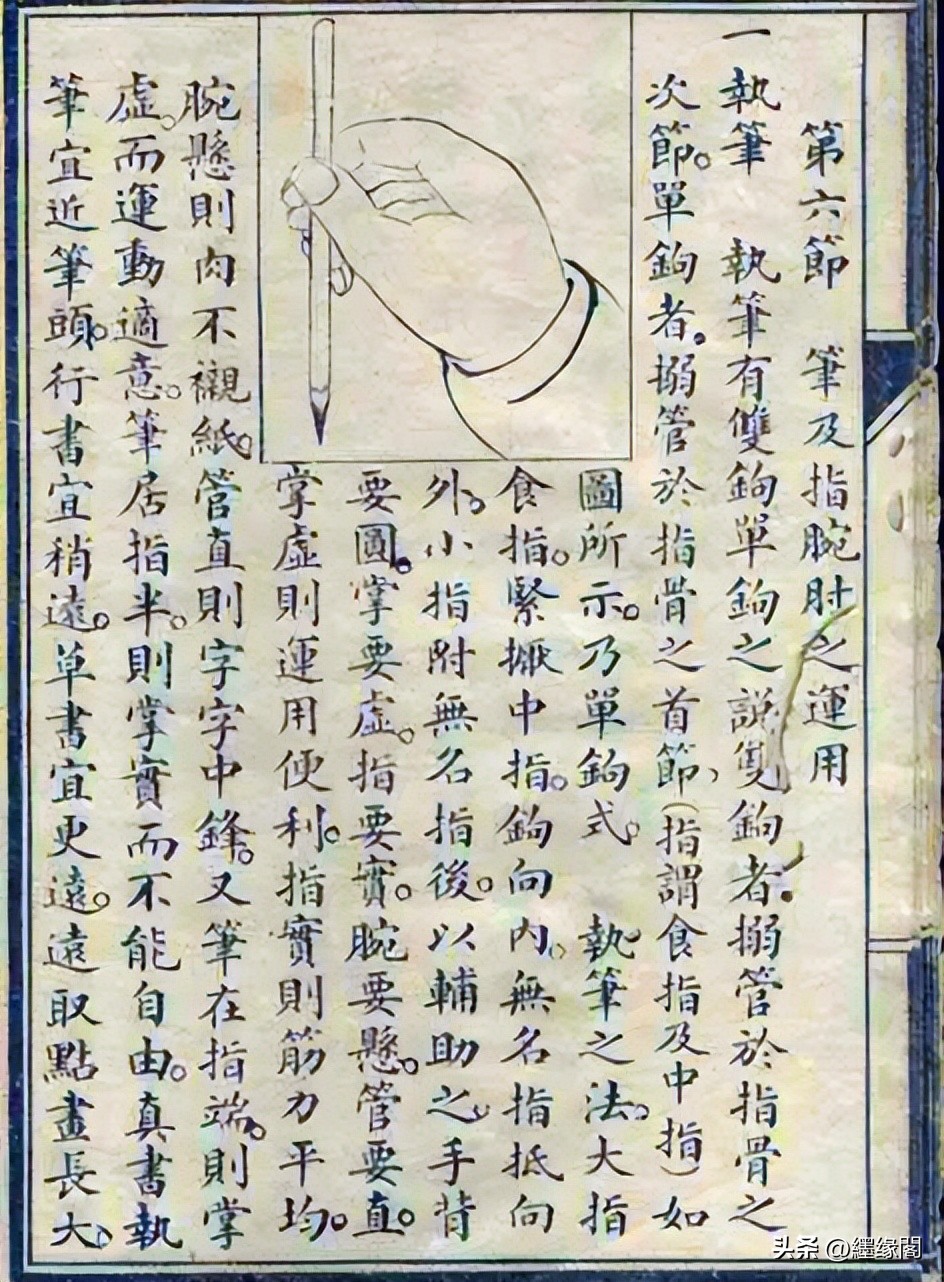 第六節 筆及指腕肘之運用
一 執筆 執筆有雙鉤單鉤之説雙鉤者。搦管於指骨之
次節。單鉤者。搦管於指骨之首節、(指謂食指及中指)如
圖所示。乃單鉤式。 執筆之法。大指
食指。緊撅中指。鉤向內。無名指抵向
外。小指附無名指後。以輔助之。手背
要圓。掌要虛。指要實。腕要懸。管要直。
掌虛則運用便利。指實則筋力平均。
腕懸則肉不襯紙。管直則字字中鋒。又筆在指端。則掌
虛。而運動適意。筆居指半。則掌實而不能自由。真書執
筆宜近筆頭。行書宜稍遠。草書宜更遠。遠取點畫長大。
头条 @纆缘閣